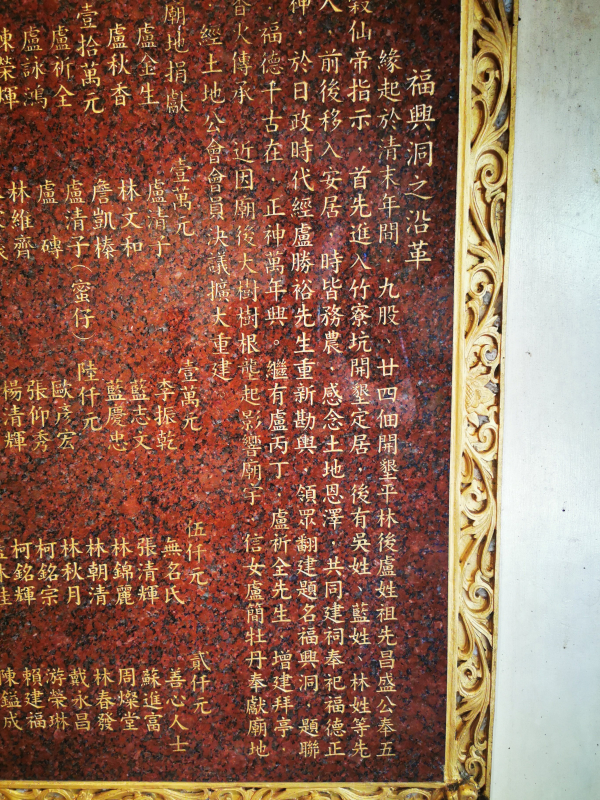 福興洞之沿革
緣起於清末年間，九股、廿四佃開墾平林後盧姓祖先昌盛公奉五
穀仙帝指示，首先進入竹寮坑開墾定居，後有吳姓、藍姓、林姓等先
人，前後移入安居，時皆務農，感念土地恩澤，共同建祠奉祀福德正
神，於日政時代經盧勝裕先生重新勘輿，領眾翻建題名福興洞，題聯
福德千古在，正神萬年興。繼有盧丙丁，盧祈全先生，增建拜亭，
香火傳承，近因廟後大樹樹根龍起影響廟宇，信女盧簡牡丹奉獻廟地
經土地公會會員決議擴大重建
廟地捐獻
盧金生
盧秋香
壹拾萬元
盧祈全
盧詠鴻
陳榮輝
壹萬元
盧清子
林文和
詹凱榛
盧清子(蜜仔)
盧磚
林維齊
壹萬元
李振乾
藍志文
藍慶忠
陸仟元
歐彥宏
張仰秀
楊清輝
伍仟元
無名氏
張清輝
林錦麗
林朝清
林秋月
柯銘宗
柯銘輝
貳仟元
善心人士
蘇進富
周燦堂
林春發
戴永昌
游榮琳
賴建福
陳鎰成